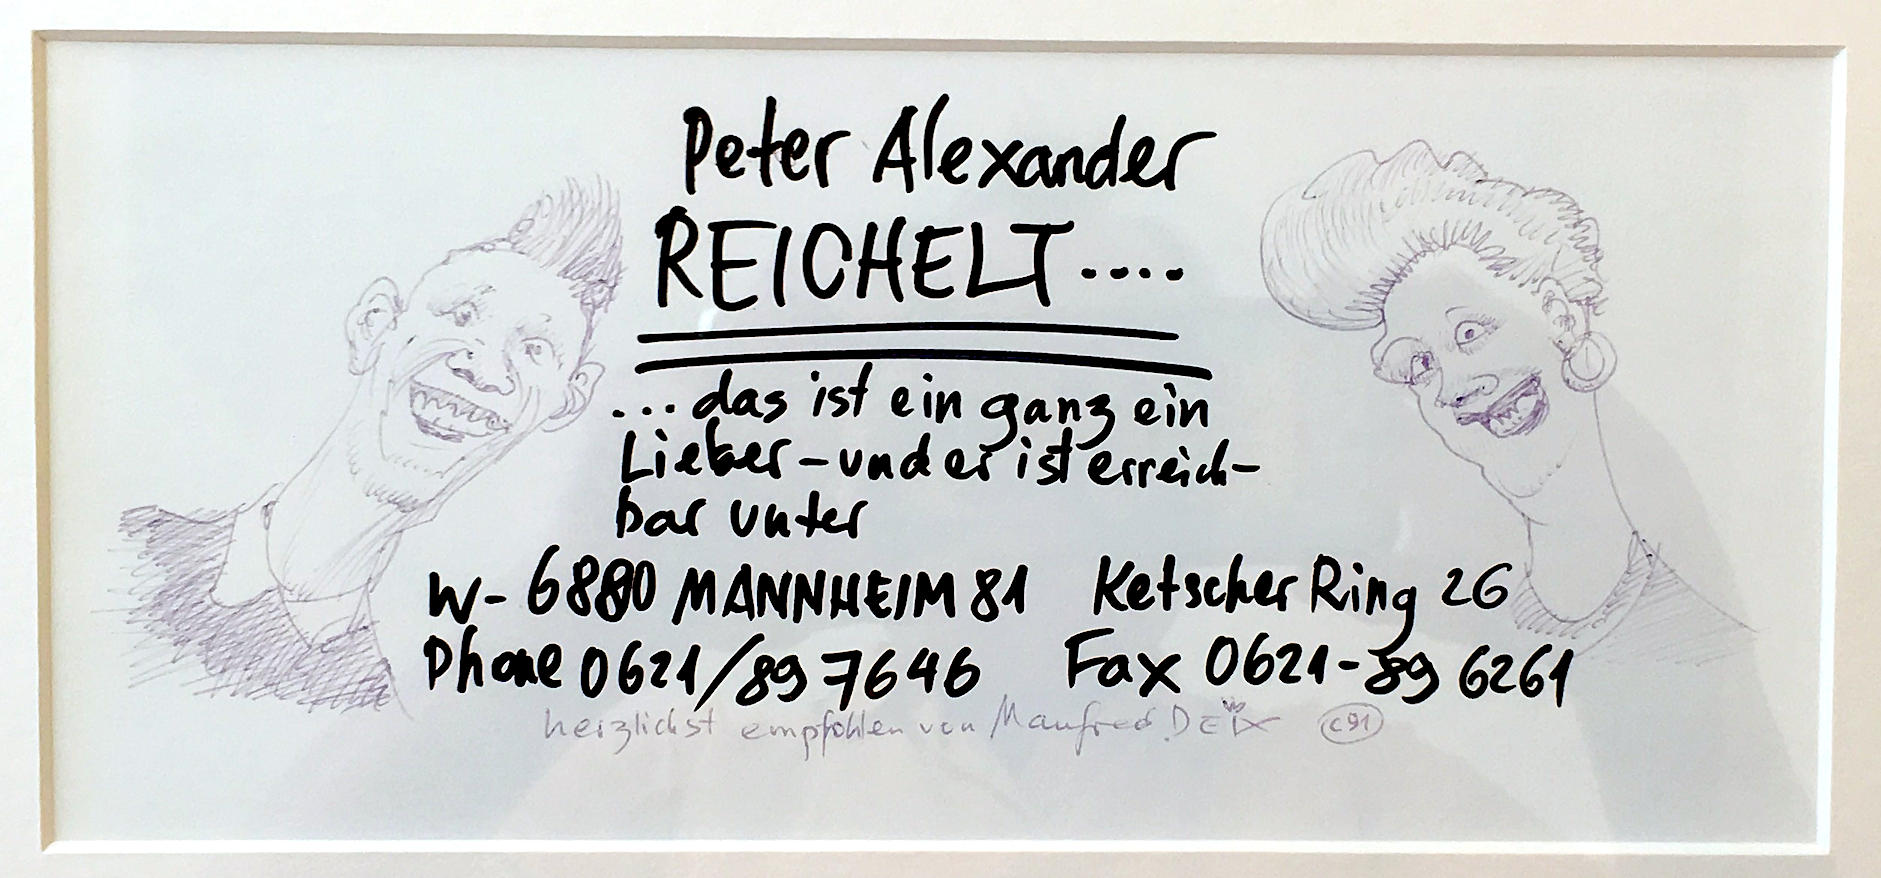 Peter Alexander
REICHELT....
...das ist ein ganz ein
Lieber – und er ist erreich-
bar unter
W- 6800 MANNHEIM 81 Ketscher Ring 26
Phone 0621/89 7646 Fax 0621-89 6261
herzlichst empfohlen von Manfred DEIX c91